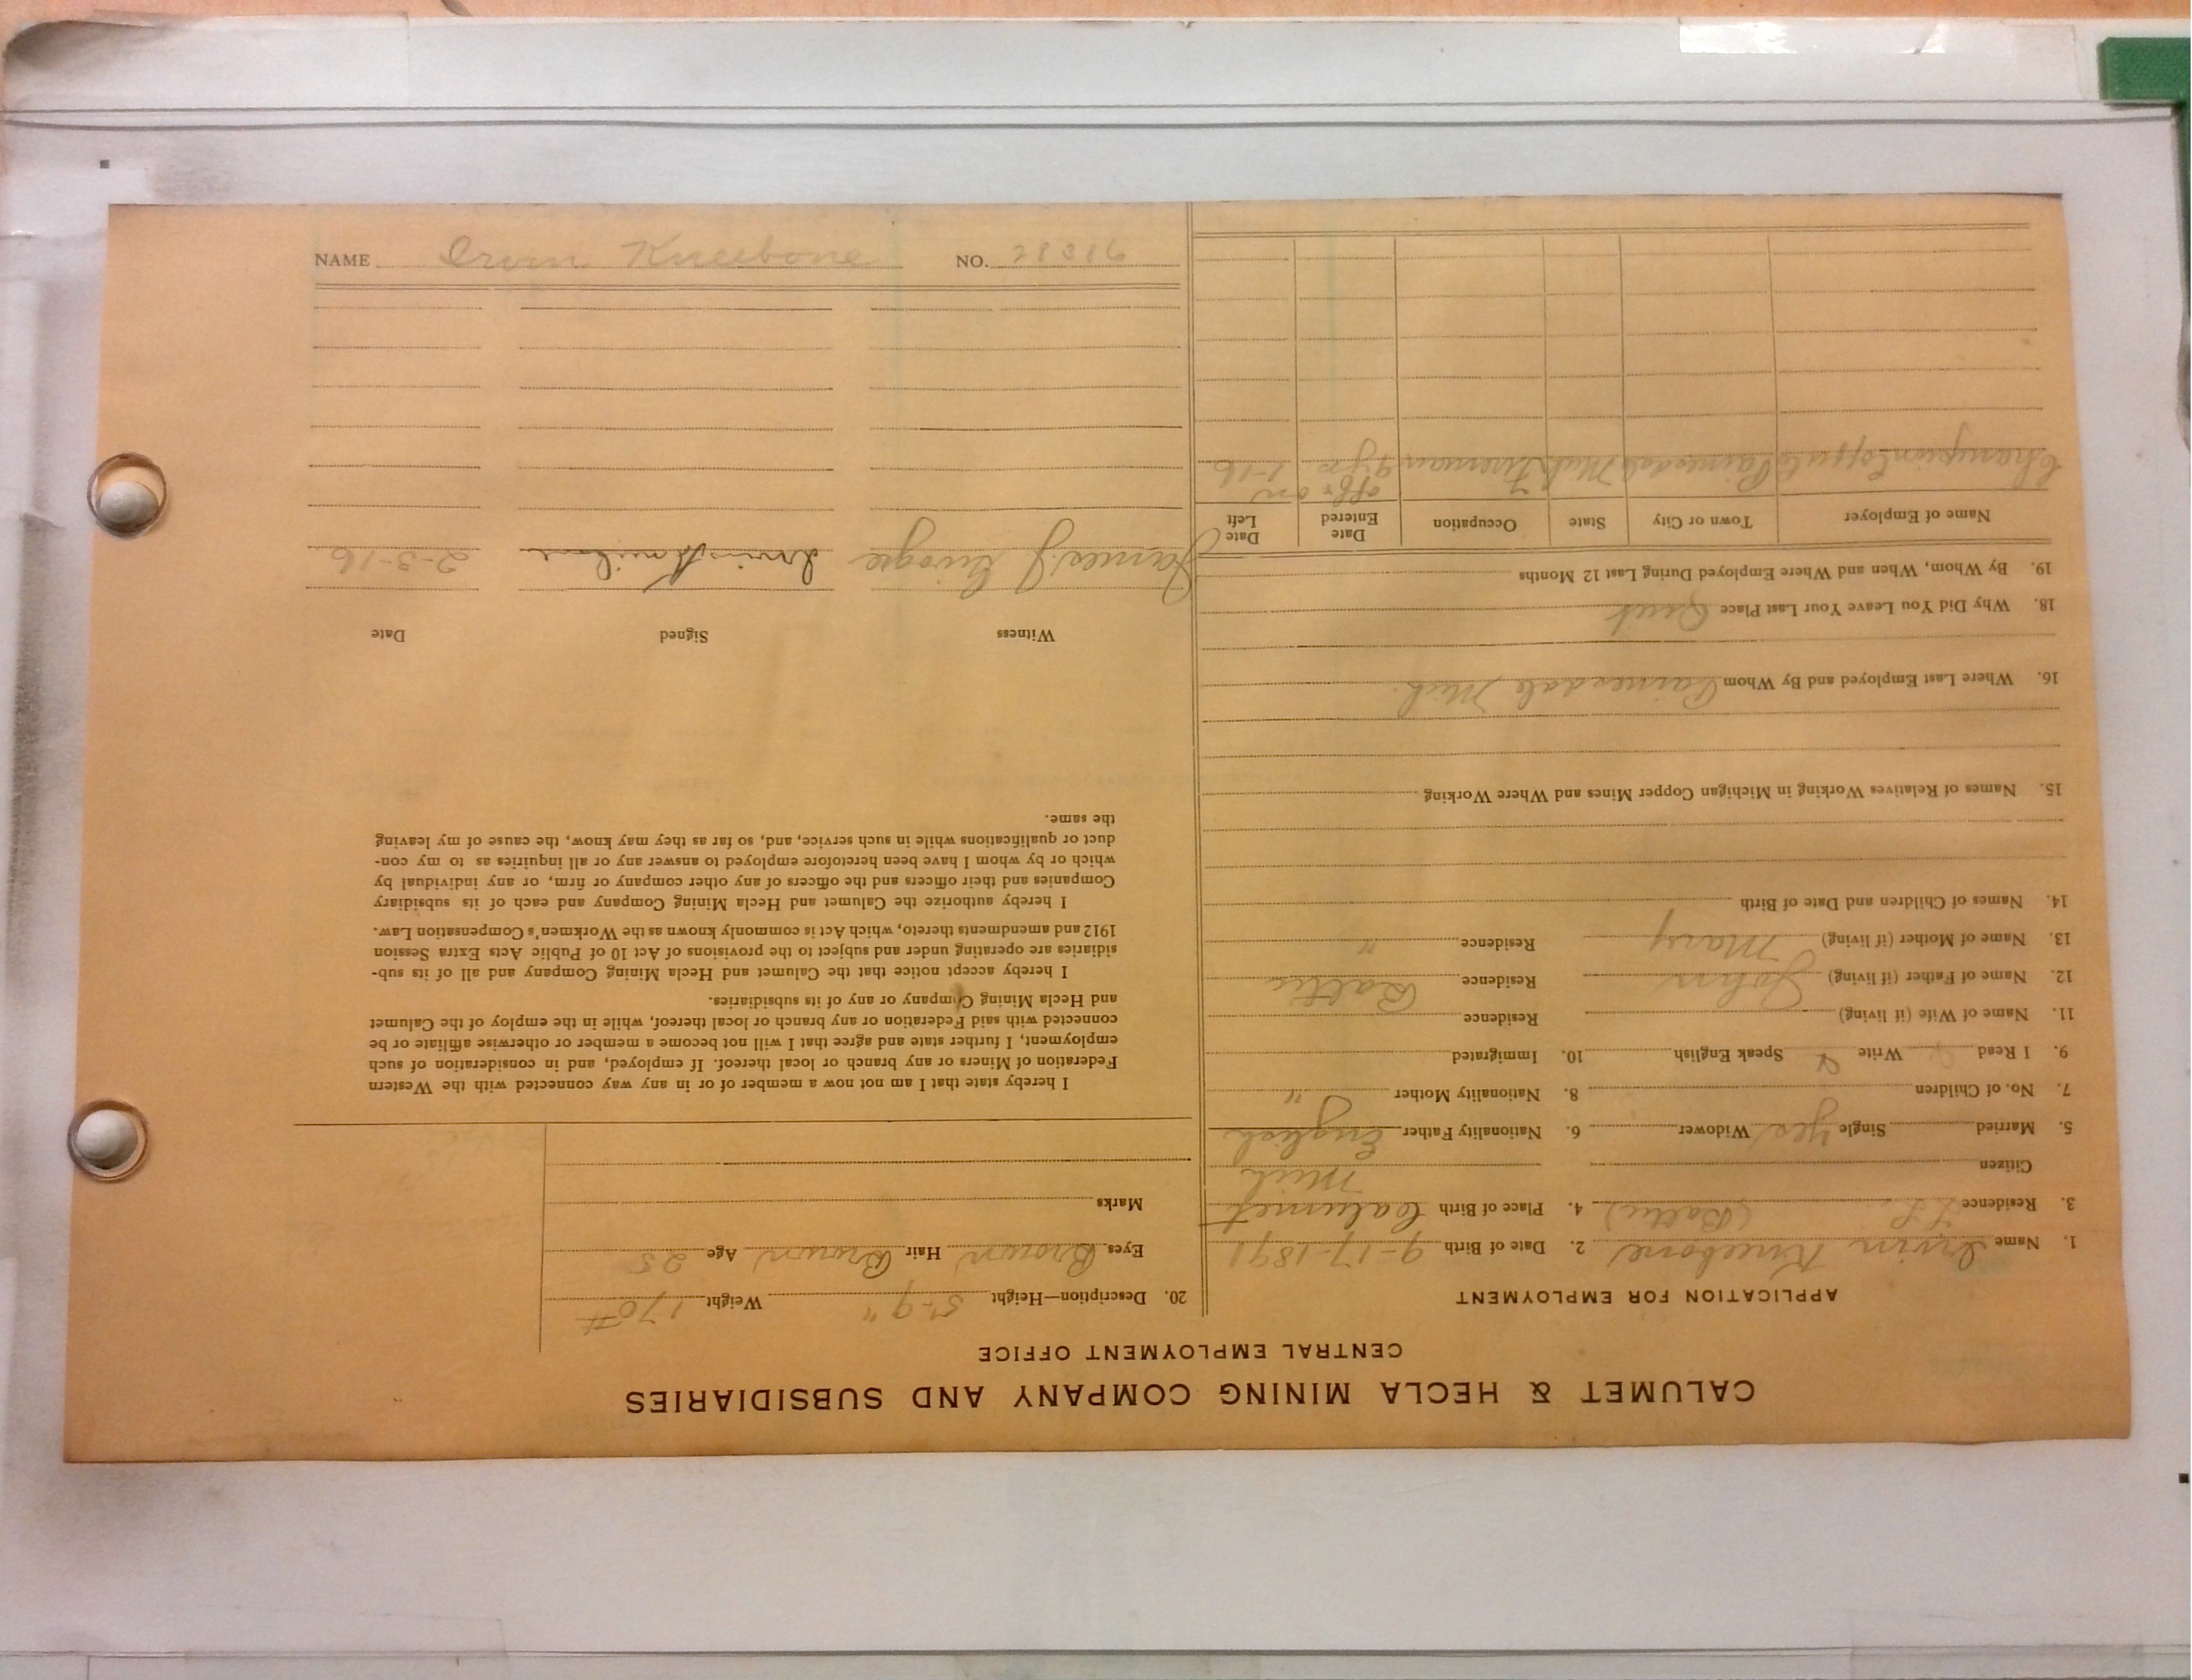 CALUMET & HECLA MINING COMPANY AND SUBSIDIARIES
CENTRAL EMPLOYMENT OFFICE
APPLICATION FOR EMPLOYMENT
1. Name Irvin Kneebone 2. Date of Birth 9-17-1891
3. Residence (Baltic) 4. Place of Birth Calumet
Citizen Mich
5. Married Single Yes Widower 6. Nationality Father English
7. No. of Children 8. Nationality Mother "
9. I Read Write Speak English 10. Immigrated
11. Name of Wife (if living) Residence
12. Name of Father (if living) John Residence Baltic
13. Name of Mother (if living) Mary Residence "
14. Names of Children and Date of Birth
15. Names of Relatives Working in Michigan Copper Mines and Where Working
16. Where Last Employed and By Whom Painesdale Mich.
18. Why Did You Leave Your Last Place Quit
19. By Whom, When and Where Employed During Last 12 Months
Name of Employer Town or City State Occupation Date Entered Date Left
off & on
Champion Copper Co Painesdale Mich Fireman 9 yrs 1-16
20. Description—Height 5'-9" Weight 170#
Eyes Brown Hair Brown Age 25
Marks
I hereby state that I am not now a member of or in any way connected with the Western
Federation of Miners or any branch or local thereof. If employed, and in consideration of such
employment, I further state and agree that I will not become a member or otherwise affiliate or be
connected with said Federation or any branch or local thereof, while in the employ of the Calumet
and Hecla Mining Company or any of its subsidiaries.
I hereby accept notice that the Calumet and Hecla Mining Company and all of its sub-
sidiaries are operating under and subject to the provisions of Act 10 of Public Acts Extra Session
1912 and amendments thereto, which Act is commonly known as the Workmen's Compensation Law.
I hereby authorize the Calumet and Hecla Mining Company and each of its subsidiary
Companies and their officers and the officers of any other company or firm, or any individual by
which or by whom I have been heretofore employed to answer any or all inquiries as to my con-
duct or qualifications while in such service, and, so far as they may know, the cause of my leaving
the same.
Witness Signed Date
James J. Irvin Kneebone 2-3-16
NAME Irvin Kneebone NO. 28386